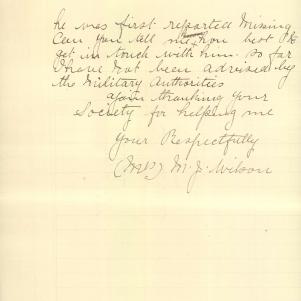 he was first reported Missing
Can you tell me how best to
get in touch with him. So far
I have not been advised by
the Military Authorities
again thanking your
Society for helping me
Your Respectfully
(Mrs) M. J. Wilson